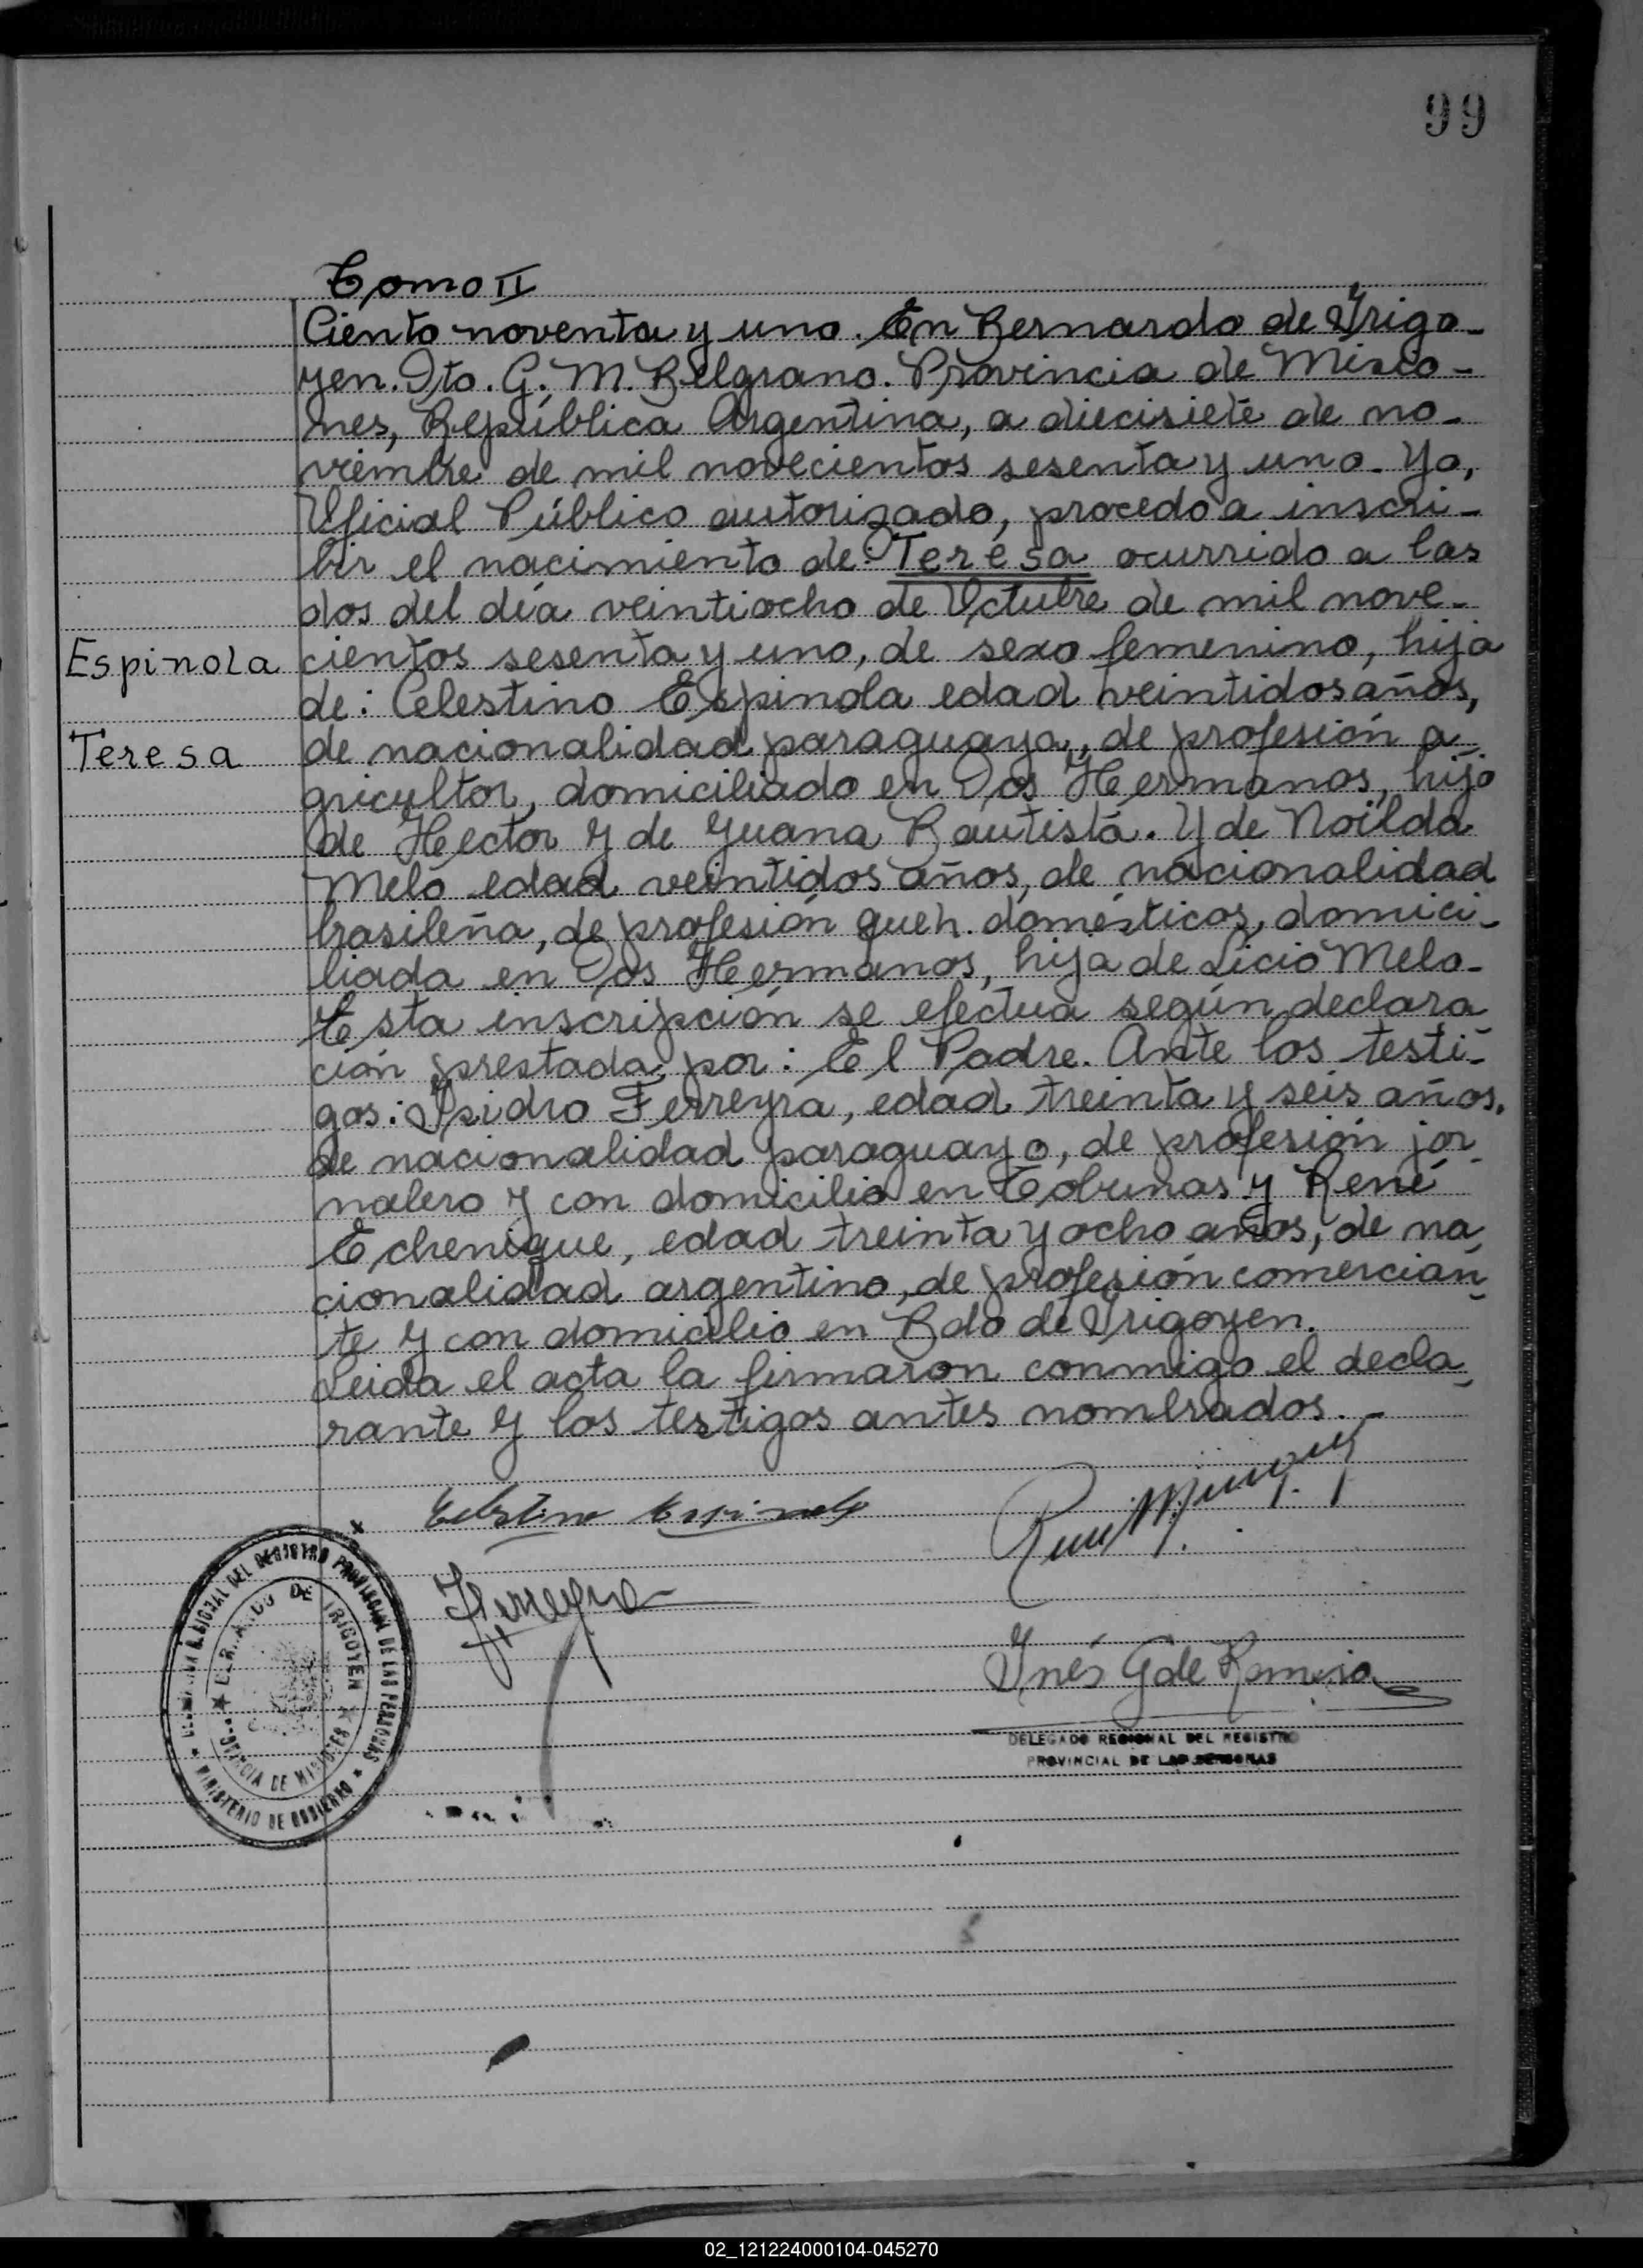 99
Tomo II
Ciento noventa y uno. En Bernardo de Yrigo-
yen. Dto. G. M. Belgrano. Provincia de Misio-
nes, República Argentina, a diecisiete de no-
viembre de mil novecientos sesenta y uno. Yo,
Oficial Público autorizado, procedo a inscri-
bir el nacimiento de: Teresa ocurrido a las
dos del día veintiocho de Octubre de mil nove-
Espinola
cientos sesenta y uno, de sexo femenino, hija
de: Celestino Espinola edad veintidos años,
Teresa
de nacionalidad paraguaya, de profesión a-
gricultor, domiciliado en Dos Hermanos, hijo
de Hector y de Yuana Bautista. Y de Noilda
Melo edad veintidos años, de nacionalidad
brasileña, de profesión queh. domésticos, domici-
liada en Dos Hermanos, hija de Licio Melo-
Esta inscripción se efectua según declara-
ción prestada por: El Padre. Ante los testi-
gos: Ysidro Ferreyra, edad treinta y seis años,
de nacionalidad paraguayo, de profesión jor-
nalero y con domicilio en Cobunas y René
Echenique, edad treinta y ocho años, de na-
cionalidad argentino, de profesión comercian-
te y con domicilio en Bdo de Yrigoyen.
Leida el acta la firmaron conmigo el decla-
rante y los testigos antes nombrados.-
Celestino Espinola
Ferreyra
Ynés G de Ramirez
DELEGADO REGIONAL DEL REGISTRO
PROVINCIAL DE LAS PERSONAS
REGIONAL DEL REGISTRO PROVINCIAL DE LAS PERSONAS
BERNARDO DE IRIGOYEN
PROVINCIA DE MISIONES
MINISTERIO DE GOBIERNO
02_121224000104-045270